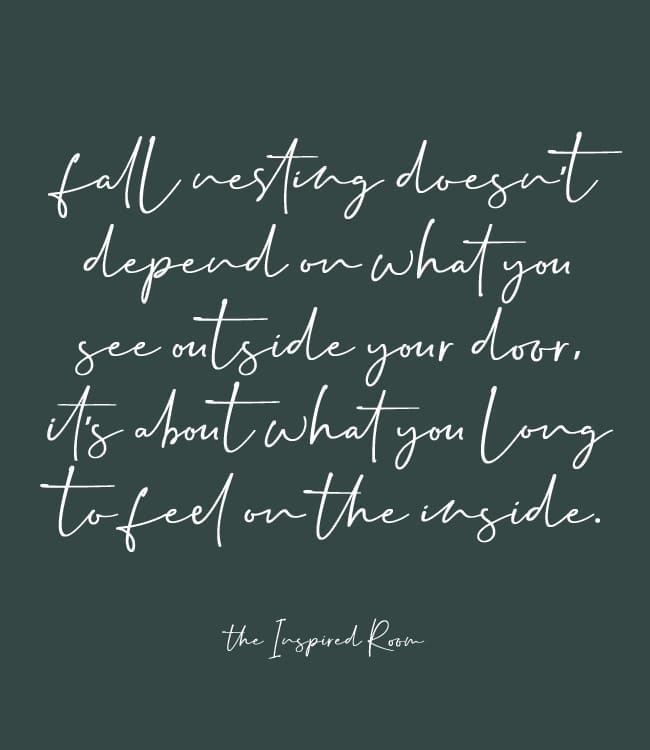 fall nesting doesn't
depend on what you
see outside your door,
it's about what you long
to feel on the inside.
the Inspired Room